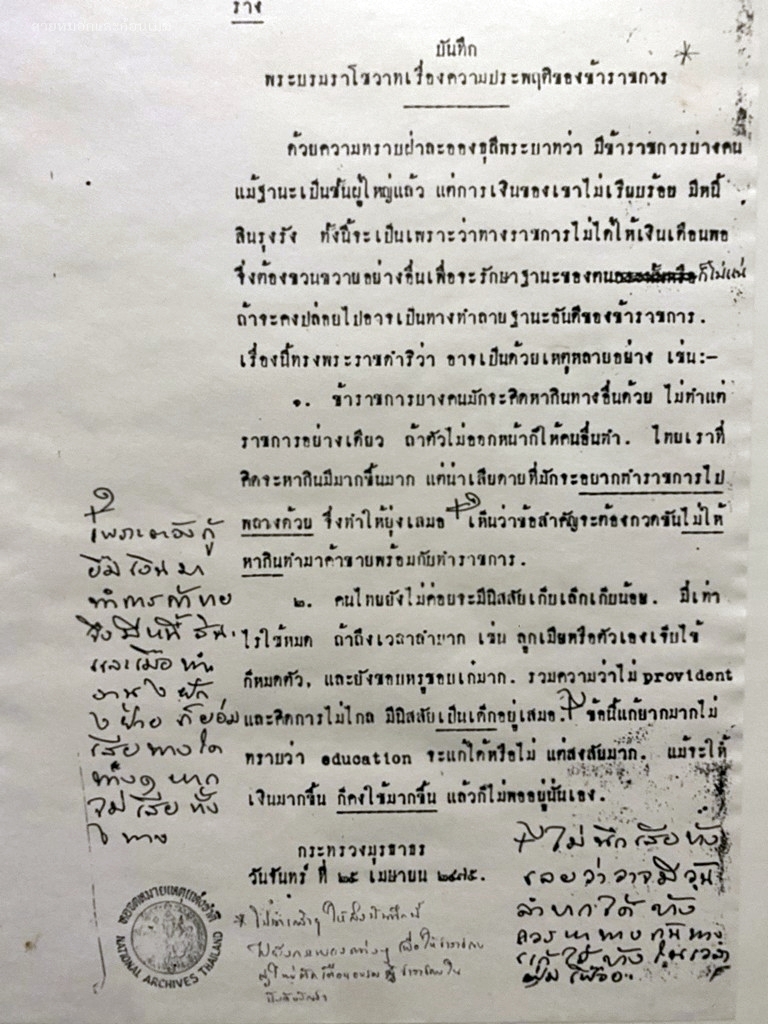 ร่าง
บันทึก
พระบรมราโชวาทเรื่องความประพฤติของข้าราชการ
ด้วยความทราบฝ่าละอองธุลีพระบาทว่า มีข้าราชการบางคน
แม้ฐานะเป็นชั้นผู้ใหญ่แล้ว แต่การเงินของเขาไม่เรียบร้อย มีหนี้
สินรุงรัง ทั้งนี้จะเป็นเพราะว่าทางราชการไม่ได้ให้เงินเดือนพอ
จึงต้องขวนขวายอย่างอื่นเพื่อจะรักษาฐานะของตน ก็ไม่แน่
ถ้าจะคงปล่อยไปอาจเป็นทางทำลายฐานะอันดีของข้าราชการ.
เรื่องนี้ทรงพระราชดำริว่า อาจเป็นด้วยเหตุหลายอย่าง เช่น:-
๑. ข้าราชการบางคนมักจะคิดหากินทางอื่นด้วย ไม่ทำแต่
ราชการอย่างเดียว ถ้าตัวไม่ออกหน้าก็ให้คนอื่นทำ. ไทยเราที่
คิดจะหากินมีมากขึ้นมาก แต่น่าเสียดายที่มักจะอยากทำราชการไป
พลางด้วย จึงทำให้ยุ่งเสมอ เห็นว่าข้อสำคัญจะต้องกวดขันไม่ให้
หากินทำมาค้าขายพร้อมกับทำราชการ.
เพราะต้องกู้
ยืมเงินมา
ทำการค้าขาย
จึงมีหนี้สิน.
และเมื่อทำ
งาน ๒ ฝัก
๒ ฝ่าย ก็ย่อม
เสียทางใด
ทางหนึ่ง
เสียทั้ง
๒ ทาง
๒. คนไทยยังไม่ค่อยจะมีนิสสัยเก็บเล็กเก็บน้อย. มีเท่า
ไรใช้หมด ถ้าถึงเวลาลำบาก เช่น ลูกเมียหรือตัวเองเจ็บไข้
ก็หมดตัว, และยังชอบหรูชอบเก๋มาก. รวมความว่าไม่ provident
และคิดการไม่ไกล มีนิสสัยเป็นเด็กอยู่เสมอ. ข้อนี้แก้ยากมากไม่
ทราบว่า education จะแก้ได้หรือไม่ แต่สงสัยมาก. แม้จะให้
เงินมากขึ้น ก็คงใช้มากขึ้น แล้วก็ไม่พออยู่นั่นเอง.
ไม่นึกเสียทั้ง
เลยว่าอาจมีวัน
ลำบากได้ ทั้ง
ควรหาทางกันทาง
แก้ไว้
กระทรวงมุรธาธร
วันจันทร์ ที่ ๒๕ เมษายน ๒๔๗๕.
หอจดหมายเหตุแห่งชาติ
NATIONAL ARCHIVES THAILAND